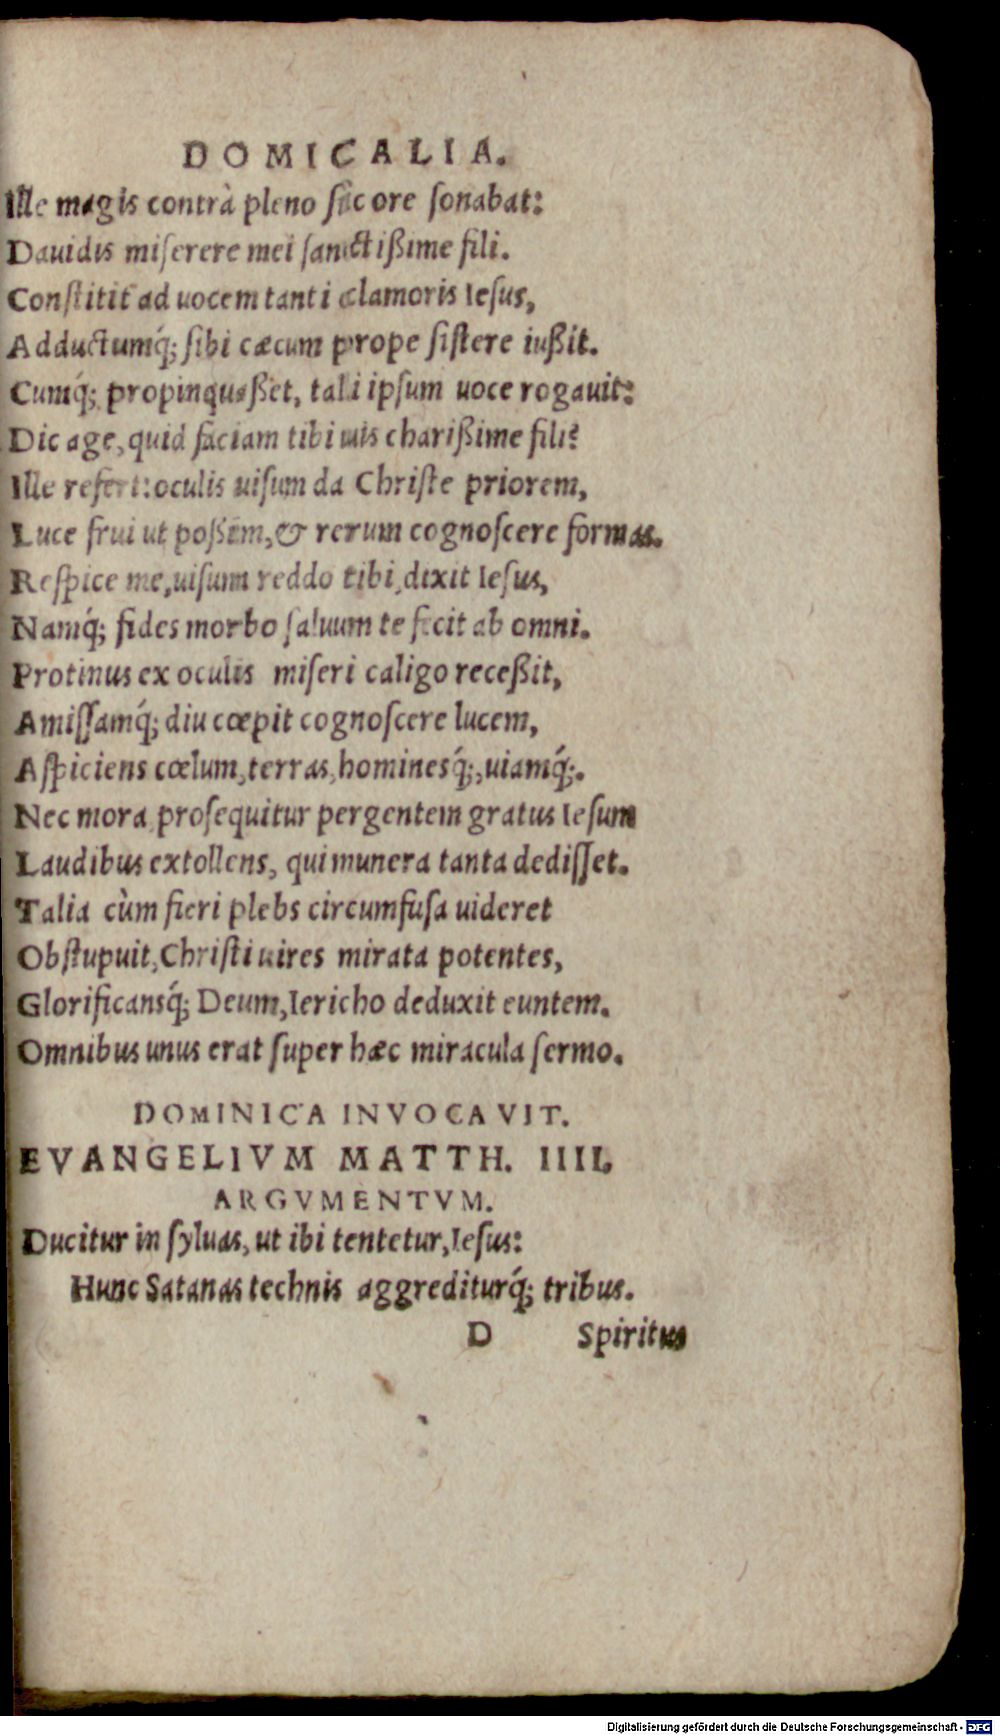 DOMICALIA.
Ille magis contrà pleno sic ore sonabat:
Dauidis miserere mei sanctißime fili.
Constitit ad uocem tanti clamoris Iesus,
Adductumq́; sibi cæcum prope sistere iußit.
Cumq́; propinquaßet, tali ipsum uoce rogauit:
Dic age, quid faciam tibi uis charißime fili?
Ille refert: oculis uisum da Christe priorem,
Luce frui ut poßim, & rerum cognoscere formas.
Respice me, uisum reddo tibi, dixit Iesus,
Namq́; fides morbo saluum te fecit ab omni.
Protinus ex oculis miseri caligo receßit,
Amissamq́; diu cœpit cognoscere lucem,
Aspiciens cœlum, terras, hominesq́;, uiamq́;.
Nec mora prosequitur pergentem gratus Iesum
Laudibus extollens, qui munera tanta dedisset.
Talia cùm fieri plebs circumfusa uideret
Obstupuit, Christi uires mirata potentes,
Glorificansq́; Deum, Iericho deduxit euntem.
Omnibus unus erat super hæc miracula sermo.
DOMINICA INVOCAVIT.
EVANGELIVM MATTH. IIII.
ARGVMENTVM.
Ducitur in syluas, ut ibi tentetur, Iesus:
Hunc Satanas technis aggrediturq́; tribus.
D Spiritus
Digitalisierung gefördert durch die Deutsche Forschungsgemeinschaft - DFG